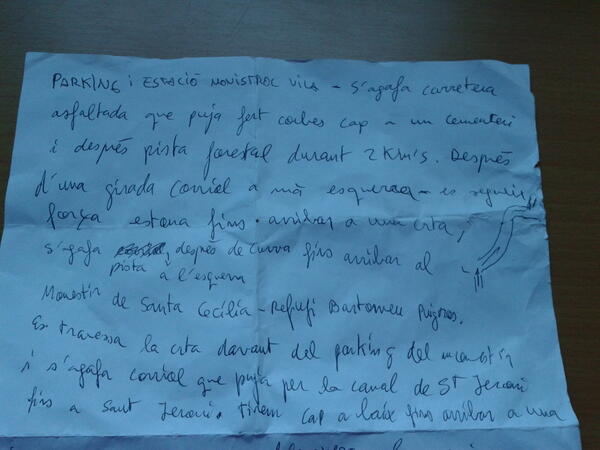 PARKING i ESTACIÓ MONISTROL VILA - S'agafa carretera
asfaltada que puja fent corbes cap a un cementeri
i després pista forestal durant 2 Km's. Després
d'una girada corriol a mà esquerra - es segueix
força estona fins arribar a una crta,
s'agafa després de curva fins arribar al
pista a l'esquerra
Monestir de Santa Cecília - Refugi Bartomeu Puigros.
Es travessa la crta davant del parking del monestir
i s'agafa corriol que puja per la canal de St Jeroni
fins a Sant Jeroni. Tirem cap a baix fins arribar a una